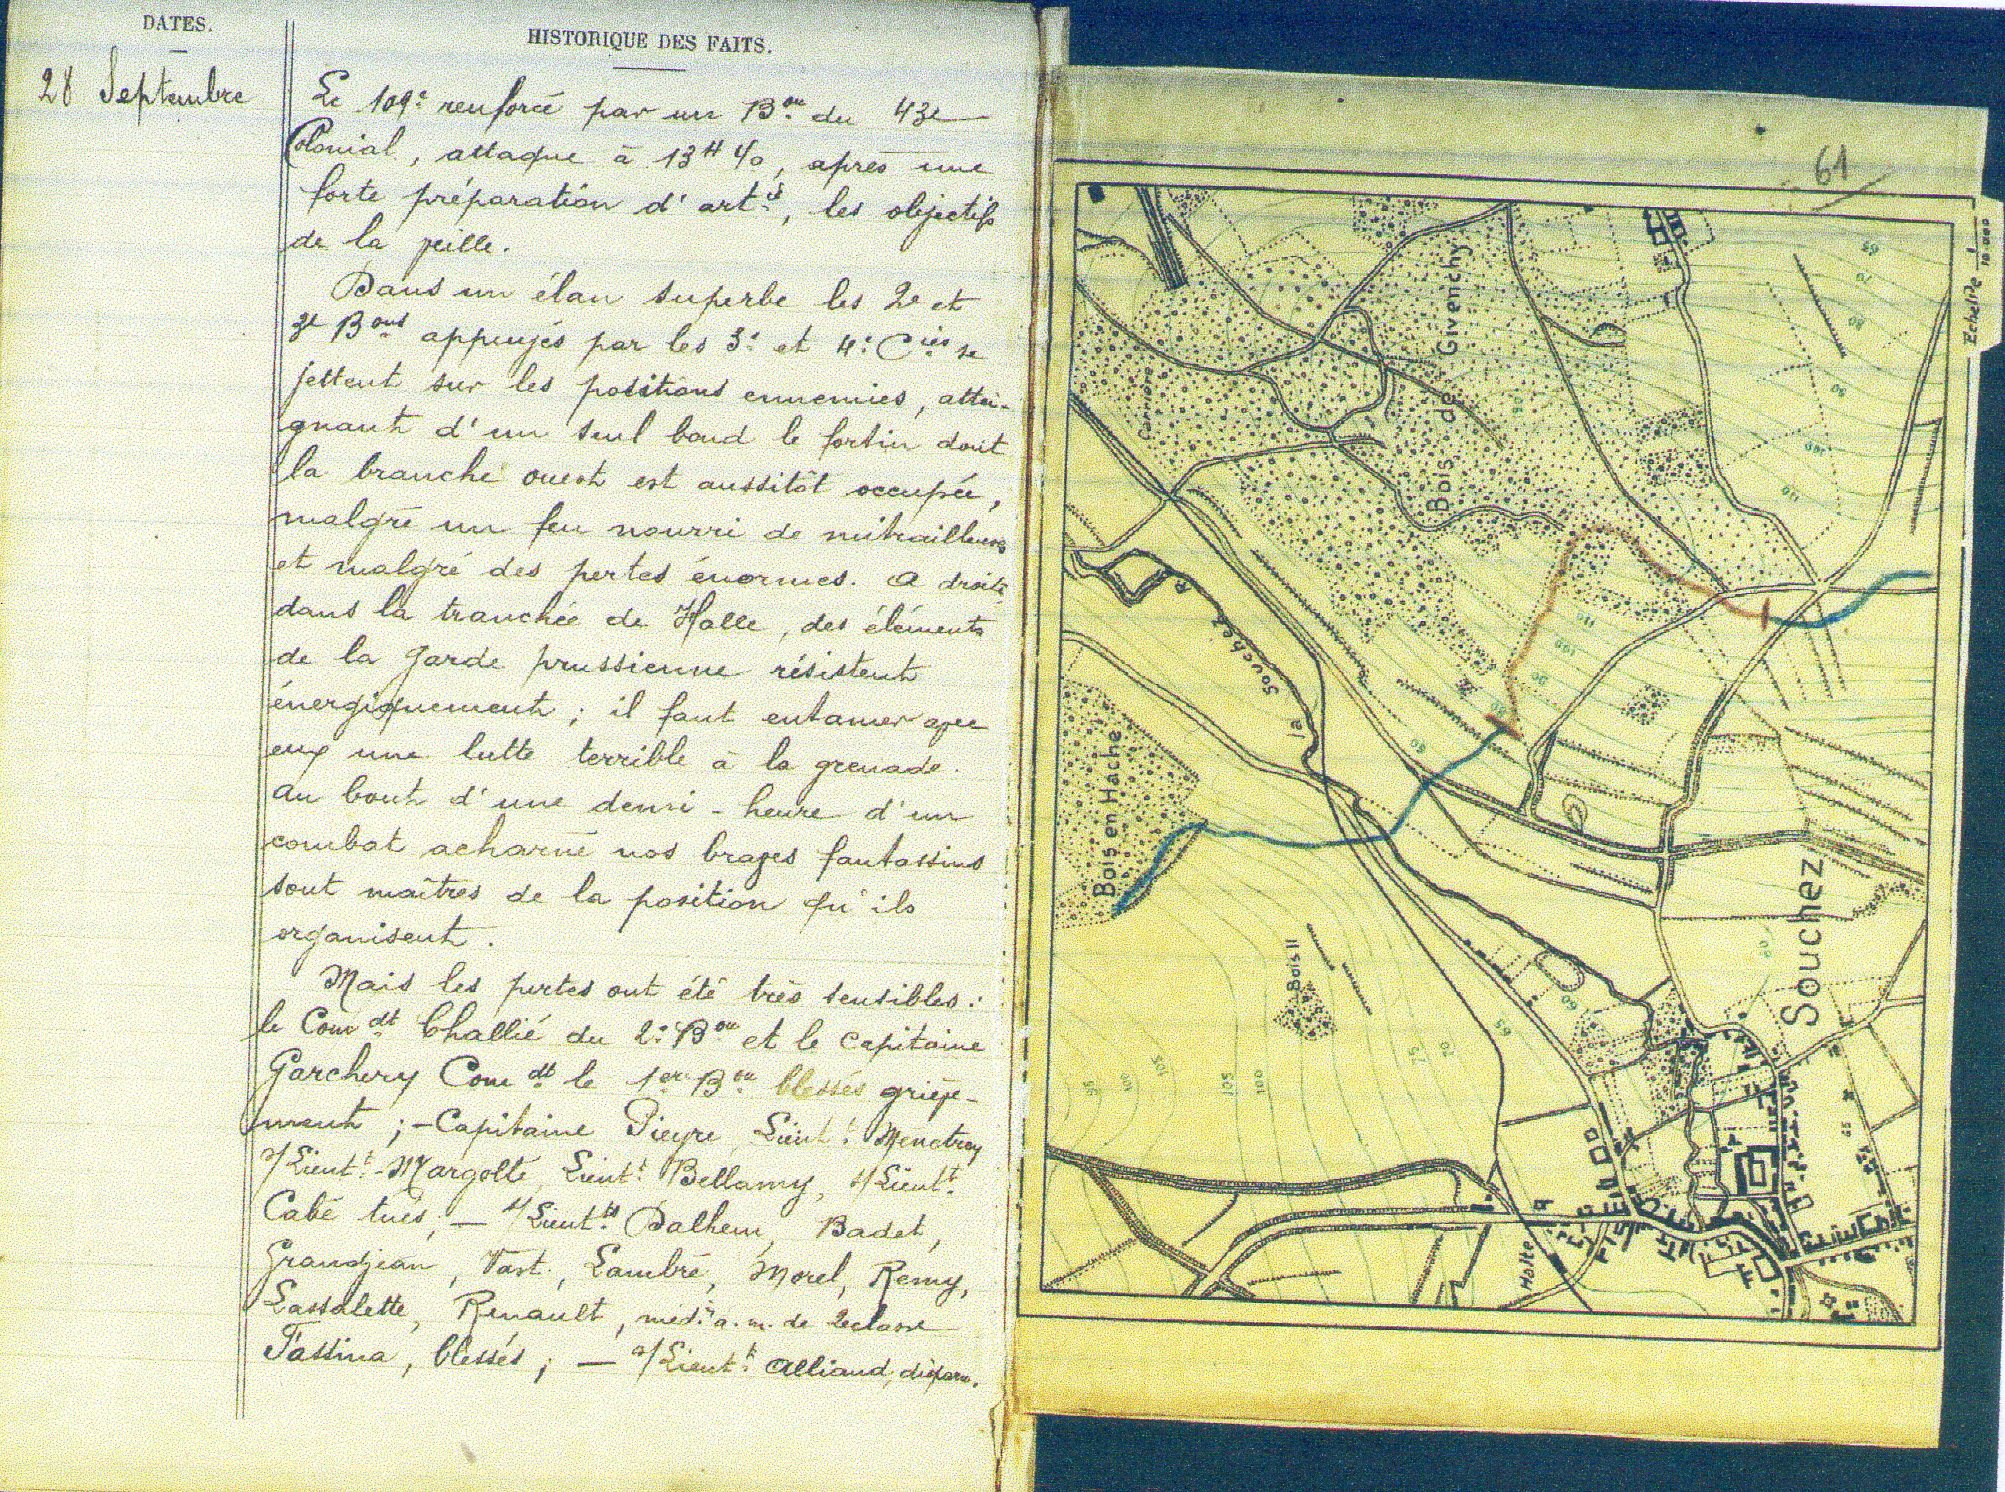 DATES.
HISTORIQUE DES FAITS.
28 Septembre
Le 109e renforcé par un Bon du 43e
Colonial, attaque à 13H40, après une
forte préparation d'artie, les objectifs
de la veille.
Dans un élan superbe les 2e et
3e Bons appuyés par les 3e et 4e Cies se
jettent sur les positions ennemies, attei-
gnant d'un seul bond le fortin dont
la branche ouest est aussitôt occupée,
malgré un feu nourri de mitrailleuses
et malgré des pertes énormes. A droite
dans la tranchée de Halle, des éléments
de la garde prussienne résistent
énergiquement ; il faut entamer avec
eux une lutte terrible à la grenade.
Au bout d'une demi-heure d'un
combat acharné nos braves fantassins
sont maîtres de la position qu'ils
organisent.
Mais les pertes ont été très sensibles :
le Comdt Challié du 2e Bon et le Capitaine
Garchery Comdt le 1er Bon blessés griève-
ment ; - Capitaine Pieyre, Lieutt Menetrey
s/Lieutt Margotté, Lieutt Bellamy, s/Lieutt
Cabé tués ; — s/Lieutts Dalhem, Badet,
Grandjean, Vast, Lambré, Morel, Remy,
Lassalette, Renault, méd. a.m. de 2e classe
Fassina, blessés ; — s/Lieutt Alliaud, disparu.
61
Echelle 1/10 000
Bois de Givenchy
Carrière
la Souchez R.
Bois en Hache
Bois II
Souchez
Halte
63
70
80
90
100
110
90
110
100
90
80
80
60
60
60
63
70
75
105
100
95
100
105
65